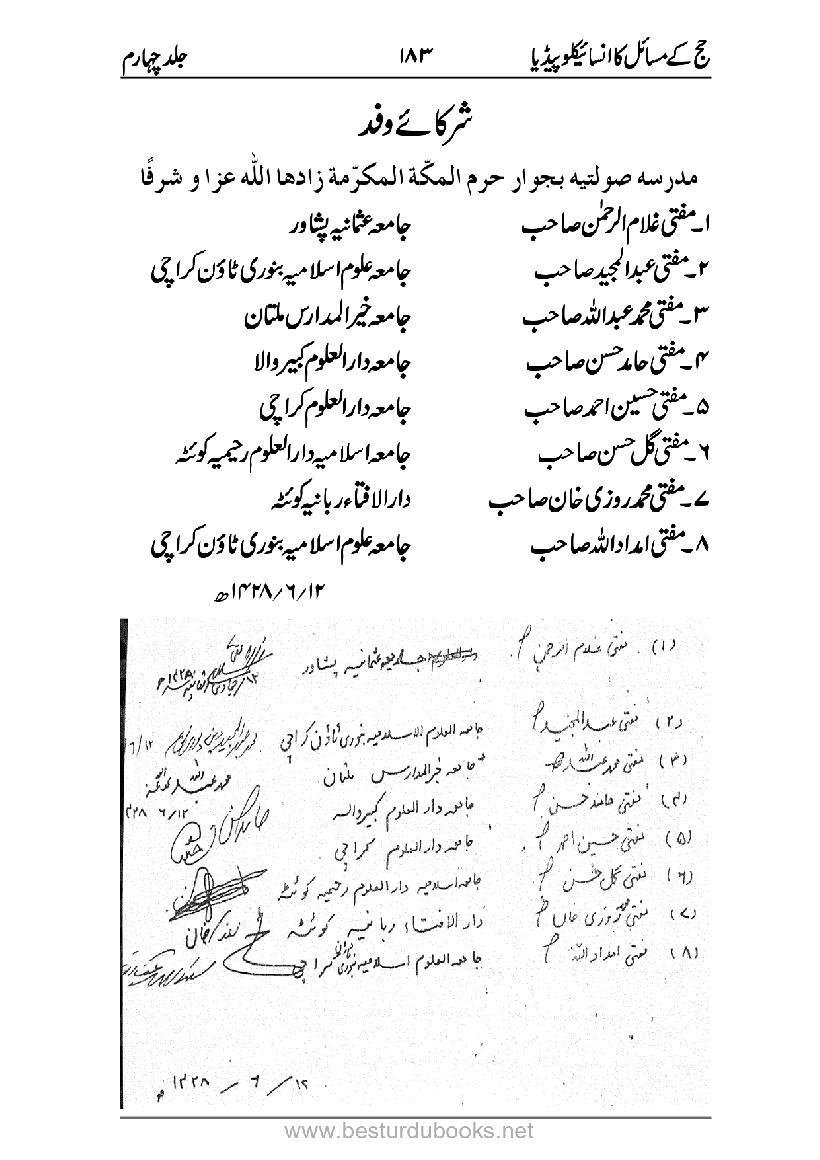 حج کے مسائل کا انسائیکلوپیڈیا ۱۸۳ جلد چہارم
شرکائے وفد
مدرسہ صولتیہ بجوار حرم المکّة المکرّمة زادها اللہ عزا و شرفًا
۱۔مفتی غلام الرحمٰن صاحب جامعہ عثمانیہ پشاور
۲۔مفتی عبدالمجید صاحب جامعہ علوم اسلامیہ بنوری ٹاؤن کراچی
۳۔مفتی محمد عبداللہ صاحب جامعہ خیر المدارس ملتان
۴۔مفتی حامد حسن صاحب جامعہ دارالعلوم کبیر والا
۵۔مفتی حسین احمد صاحب جامعہ دارالعلوم کراچی
۶۔مفتی گل حسن صاحب جامعہ اسلامیہ دارالعلوم رحیمیہ کوئٹہ
۷۔مفتی محمد روزی خان صاحب دارالافتاء ربانیہ کوئٹہ
۸۔مفتی امداد اللہ صاحب جامعہ علوم اسلامیہ بنوری ٹاؤن کراچی
۱۴۲۸/۶/۱۲ھ
(۱) مفتی غلام الرحمٰن جامعہ عثمانیہ پشاور
(۲) مفتی عبدالمجید جامعہ العلوم الاسلامیہ بنوری ٹاؤن کراچی ۶/۱۲
(۳) مفتی محمد عبداللہ جامعہ خیرالمدارس ملتان محمد عبداللہ
(۴) مفتی حامد حسن جامعہ دار العلوم کبیروالہ ۶/۱۲
(۵) مفتی حسین احمد جامعہ دارالعلوم کراچی
(۶) مفتی گل حسن جامعہ اسلامیہ دارالعلوم رحیمیہ کوئٹہ
(۷) مفتی محمد روزی خان دار الافتاء ربانیہ کوئٹہ
(۸) مفتی امداد اللہ جامعہ العلوم اسلامیہ بنوری ٹاؤن کراچی
۱۲/۶/۱۴۲۸ھ
www.besturdubooks.net